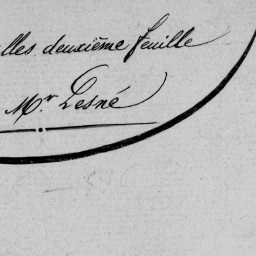 lles deuxième feuille
Mr Lesné